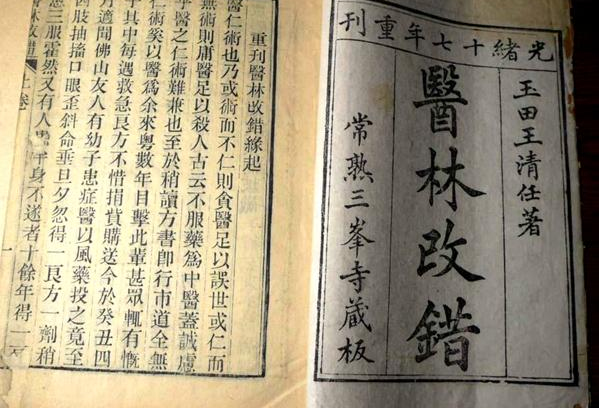 光緒十七年重刊
玉田王清任著
醫林改錯
常熟三峯寺藏板
重刊醫林改錯緣起
醫仁術也乃或術而不仁則貪醫足以誤世或仁而
無術則庸醫足以殺人古云不服藥爲中醫蓋誠慮
乎醫之仁術難兼也至於稍讀方書卽行市道全無
仁術矣以醫爲余來粵數年目擊此輩甚眾輒有慨
于其中每遇救急良方不惜捐貲購送今於癸丑四
月適閩佛山友人有幼子患症醫以風藥投之竟至
四肢抽搐口眼歪斜命垂旦夕忽得一良方一劑稍
愈三服霍然又有人患半身不遂者十餘年得一
林改錯
上卷
一